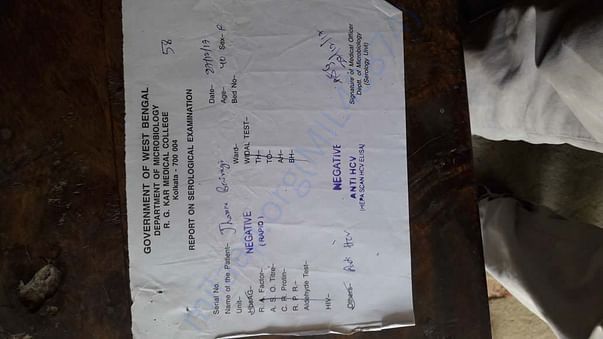 58
GOVERNMENT OF WEST BENGAL
DEPARTMENT OF MICROBIOLOGY
R. G. KAR MEDICAL COLLEGE
Kolkata - 700 004
REPORT ON SEROLOGICAL EXAMINATION
Serial No. Date- 27/12/17
Name of the Patient- Jharna Age- 40 Sex- F
Unit- Ward- Bed No-
HBsAG- NEGATIVE WIDAL TEST-
(RAPID)
R. A. Factor- TH-
A. S. O. Titre- TO-
C. R. Protin- AH-
R. P. R.- BH-
Aldehyde Test-
HIV-
NEGATIVE
Others- Anti HCV
ANTI HCV
(HEPA SCAN HCV ELISA)
Signature of Medical Officer
Deptt. of Microbiology
(Serology Unit)